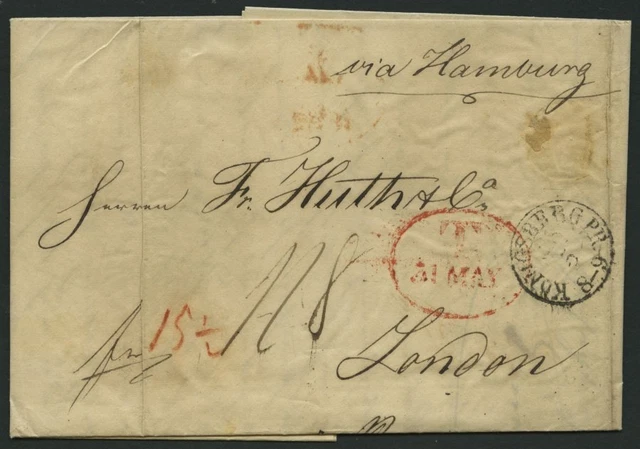 via Hamburg
Herren Fr. Huth & Co.
KÖNIGSBERG PR. 6-8
31 MAY
15½ 1/8
London